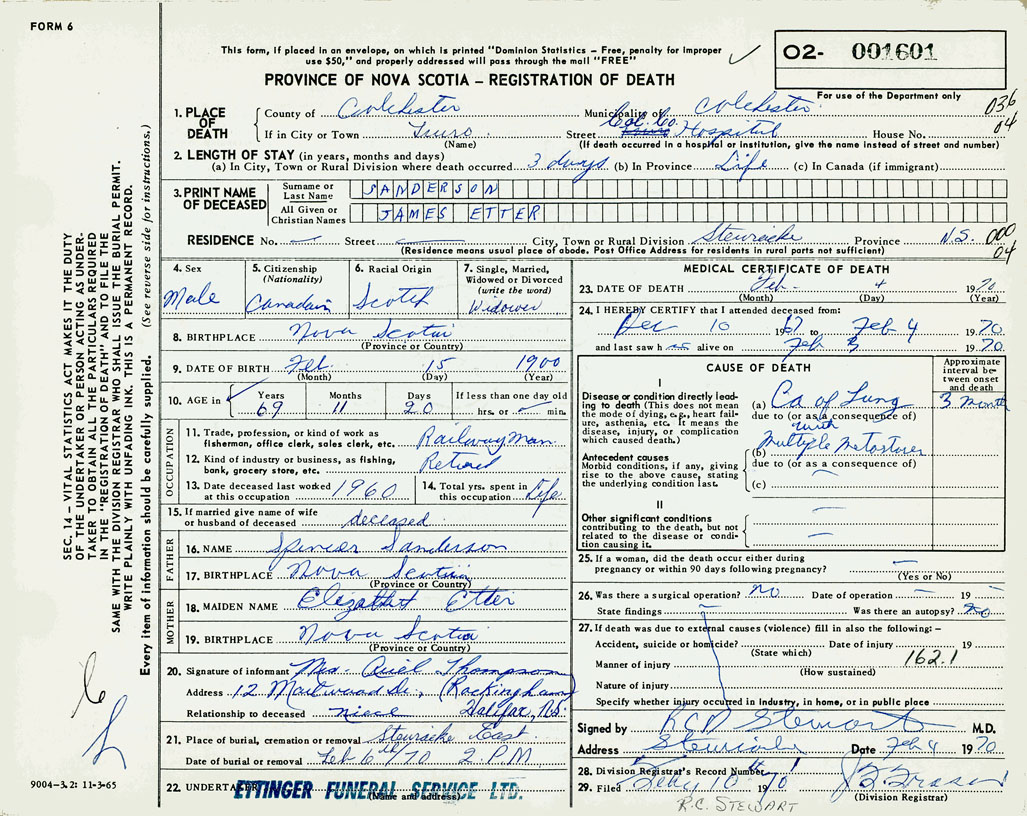 FORM 6
This form, if placed in an envelope, on which is printed "Dominion Statistics – Free, penalty for improper
use $50," and properly addressed will pass through the mail "FREE"
O2- 001601
PROVINCE OF NOVA SCOTIA – REGISTRATION OF DEATH
For use of the Department only
036
04
1. PLACE OF DEATH County of Colchester Municipality of Colchester
If in City or Town Truro Street Col. Co. Hospital House No.
(Name) (If death occurred in a hospital or institution, give the name instead of street and number)
2. LENGTH OF STAY (in years, months and days)
(a) In City, Town or Rural Division where death occurred 3 days (b) In Province Life (c) In Canada (if immigrant)
3. PRINT NAME OF DECEASED Surname or Last Name SANDERSON
All Given or Christian Names JAMES ETTER
RESIDENCE No. — Street — City, Town or Rural Division Stewiacke Province N.S. 000
04
(Residence means usual place of abode. Post Office Address for residents in rural parts not sufficient)
SEC. 14 – VITAL STATISTICS ACT MAKES IT THE DUTY
OF THE UNDERTAKER OR PERSON ACTING AS UNDER-
TAKER TO OBTAIN ALL THE PARTICULARS REQUIRED
IN THE "REGISTRATION OF DEATH" AND TO FILE THE
SAME WITH THE DIVISION REGISTRAR WHO SHALL ISSUE THE BURIAL PERMIT.
WRITE PLAINLY WITH UNFADING INK. THIS IS A PERMANENT RECORD.
Every item of information should be carefully supplied. (See reverse side for instructions.)
4. Sex Male
5. Citizenship (Nationality) Canadian
6. Racial Origin Scotch
7. Single, Married, Widowed or Divorced (write the word) Widower
8. BIRTHPLACE Nova Scotia
(Province or Country)
9. DATE OF BIRTH Feb. 15 1900
(Month) (Day) (Year)
10. AGE in Years 69 Months 11 Days 20 If less than one day old
hrs. or min.
OCCUPATION
11. Trade, profession, or kind of work as
fisherman, office clerk, sales clerk, etc. Railway Man
12. Kind of industry or business, as fishing,
bank, grocery store, etc. Retired
13. Date deceased last worked
at this occupation 1960
14. Total yrs. spent in
this occupation Life
15. If married give name of wife
or husband of deceased deceased
FATHER
16. NAME Spencer Sanderson
17. BIRTHPLACE Nova Scotia
(Province or Country)
MOTHER
18. MAIDEN NAME Elizabeth Etter
19. BIRTHPLACE Nova Scotia
(Province or Country)
20. Signature of informant Mrs. Thompson
Address 12 (Rockingham)
Relationship to deceased niece Halifax, N.S.
21. Place of burial, cremation or removal Stewiacke East
Date of burial or removal Feb 6th/70 2 P.M
22. UNDERTAKER ETTINGER FUNERAL SERVICE LTD.
(Name and address)
9004–3.2: 11-3-65
MEDICAL CERTIFICATE OF DEATH
23. DATE OF DEATH Feb. 4 1970
(Month) (Day) (Year)
24. I HEREBY CERTIFY that I attended deceased from:
Dec 10 1967 to Feb 4 1970
and last saw h alive on Feb 3 1970
CAUSE OF DEATH
Approximate interval between onset and death
I
Disease or condition directly leading to death (This does not mean the mode of dying, e.g., heart failure, asthenia, etc. It means the disease, injury, or complication which caused death.)
(a) Ca of Lung 3 months
due to (or as a consequence of)
with
(b) Multiple Metastases
due to (or as a consequence of)
(c) —
Antecedent causes
Morbid conditions, if any, giving rise to the above cause, stating the underlying condition last.
II
Other significant conditions
contributing to the death, but not related to the disease or condition causing it.
25. If a woman, did the death occur either during
pregnancy or within 90 days following pregnancy? —
(Yes or No)
26. Was there a surgical operation? No Date of operation — 19 —
State findings — Was there an autopsy? No
27. If death was due to external causes (violence) fill in also the following: –
Accident, suicide or homicide? Date of injury 19
(State which)
Manner of injury 162.1
(How sustained)
Nature of injury
Specify whether injury occurred in industry, in home, or in public place
Signed by RCD Stewart M.D.
Address Stewiacke Date Feb 4 1970
28. Division Registrar's Record Number
29. Filed 10 1970
(Division Registrar)
R.C. STEWART